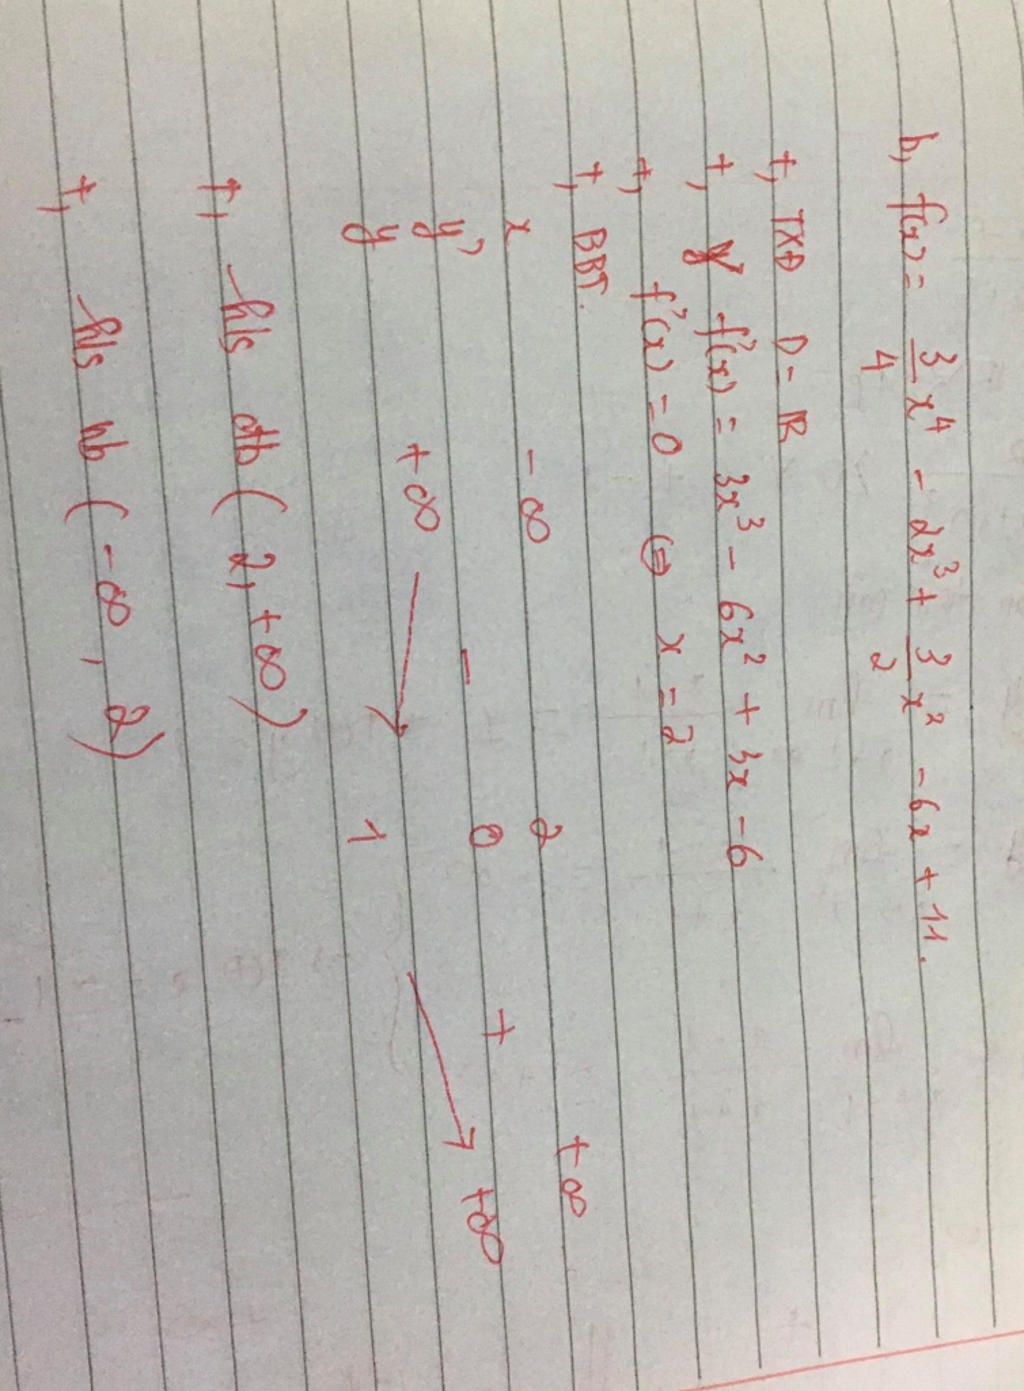 b, f(x) = 3/4 x⁴ - 2x³ + 3/2 x² - 6x + 11.
+, TXĐ D = ℝ
+, f'(x) = 3x³ - 6x² + 3x - 6
+, f'(x) = 0 ⇔ x = 2
+, BBT.
x -∞ 2 +∞
y' - 0 +
y +∞ ↘ 1 ↗ +∞
+, h/s đb (2, +∞)
+, h/s nb (-∞, 2)